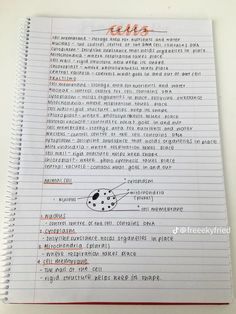 cells
cell membrane - storage area for nutrients and water
nucleus - the control centre of the cell, contains DNA
cytoplasm - jellylike substance that holds organelles in place
mitochondria - where respiration takes place
cell wall - rigid structure, helps keep in shape
chloroplast - where photosynthesis takes place
central vacuole - controls what goes in and out of the cell
cell membrane - storage area for nutrients and water
nucleus - the control centre of the cell, contains DNA
cytoplasm - holds organelles in place, jellylike substance
mitochondria - where respiration takes place
cell wall - rigid structure helps keep in shape
chloroplast - where photosynthesis takes place
central vacuole - controls what goes in and out
cell membrane - storage area for nutrients and water
nucleus - control centre of the cell, contains DNA
cytoplasm - jellylike substance that holds organelles in place
mitochondria - where respiration takes place
cell wall - rigid structure helps keep shape
chloroplast - where photosynthesis takes place
central vacuole - controls what goes in and out
animal cell
cytoplasm
mitochondria
(plural)
nucleus
cell membrane
@freeekyfried
1. nucleus
- control centre of the cell. contains DNA
2. cytoplasm
- jellylike substance holds organelles in place
3. mitochondria (plural)
- where respiration takes place
4. cell membrane
- the wall of the cell
- rigid structure helps keep in shape